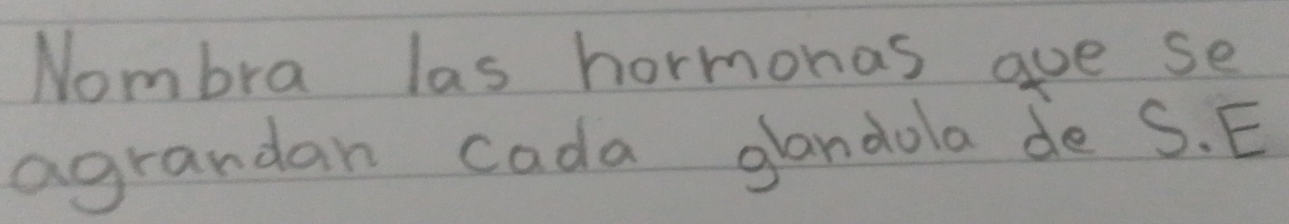 Nombra las hormonas que se
agrandan cada glandula de S.E